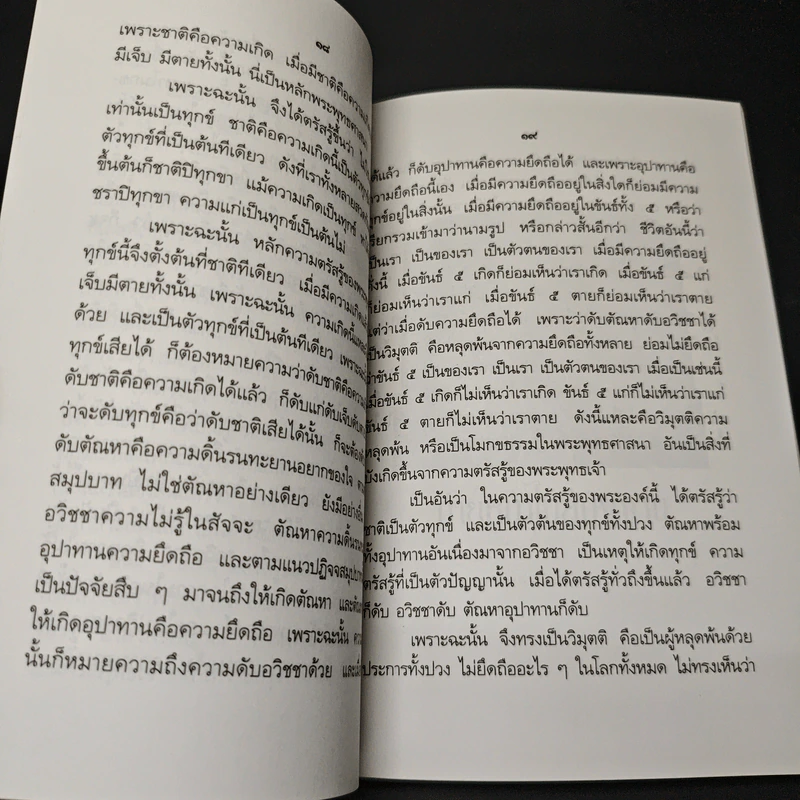 ๑๘
เพราะชาติคือความเกิด เมื่อมีชาติคือความ
มีเจ็บ มีตายทั้งนั้น นี่เป็นหลักพระพุทธศาส
เพราะฉะนั้น จึงได้ตรัสรู้ขึ้นว่า
เท่านั้นเป็นทุกข์ ชาติคือความเกิดนี้เป็นตัว
ตัวทุกข์ที่เป็นต้นทีเดียว ดังที่เราทั้งหลาย
ขึ้นต้นก็ชาติปิทุกขา แม้ความเกิดเป็นทุกข์
ชราปิทุกขา ความแก่เป็นทุกข์เป็นต้นไม่
เพราะฉะนั้น หลักความตรัสรู้ของพระ
ทุกข์นี้จึงตั้งต้นที่ชาติทีเดียว เมื่อมีความเกิด
เจ็บมีตายทั้งนั้น เพราะฉะนั้น ความเกิดนี้
ด้วย และเป็นตัวทุกข์ที่เป็นต้นทีเดียว เพราะ
ทุกข์เสียได้ ก็ต้องหมายความว่าดับชาติคือ
ดับชาติคือความเกิดได้แล้ว ก็ดับแก่ดับเจ็บ
ว่าจะดับทุกข์คือว่าดับชาติเสียได้นั้น ก็จะต้อง
ดับตัณหาคือความดิ้นรนทะยานอยากของใจ
สมุปบาท ไม่ใช่ตัณหาอย่างเดียว ยังมี
อวิชชาความไม่รู้ในสัจจะ ตัณหาความดิ้นรน
อุปาทานความยึดถือ และตามแนวปฏิจจสมุปบา
เป็นปัจจัยสืบ ๆ มาจนถึงให้เกิดตัณหา และ
ให้เกิดอุปาทานคือความยึดถือ เพราะฉะนั้น
นั้นก็หมายความถึงความดับอวิชชาด้วย
๑๙
ได้แล้ว ก็ดับอุปาทานคือความยึดถือได้ และเพราะอุปาทานคือ
ความยึดถือนี้เอง เมื่อมีความยึดถืออยู่ในสิ่งใดก็ย่อมมีความ
ทุกข์อยู่ในสิ่งนั้น เมื่อมีความยึดถืออยู่ในขันธ์ทั้ง ๕ หรือว่า
เรียกรวมเข้ามาว่านามรูป หรือกล่าวสั้นอีกว่า ชีวิตอันนี้ว่า
เป็นเรา เป็นของเรา เป็นตัวตนของเรา เมื่อมีความยึดถืออยู่
ดั่งนี้ เมื่อขันธ์ ๕ เกิดก็ย่อมเห็นว่าเราเกิด เมื่อขันธ์ ๕ แก่
ก็ย่อมเห็นว่าเราแก่ เมื่อขันธ์ ๕ ตายก็ย่อมเห็นว่าเราตาย
แต่ว่าเมื่อดับความยึดถือได้ เพราะว่าดับตัณหาดับอวิชชาได้
เป็นวิมุตติ คือหลุดพ้นจากความยึดถือทั้งหลาย ย่อมไม่ยึดถือ
ว่าขันธ์ ๕ เป็นของเรา เป็นเรา เป็นตัวตนของเรา เมื่อเป็นเช่นนี้
เมื่อขันธ์ ๕ เกิดก็ไม่เห็นว่าเราเกิด ขันธ์ ๕ แก่ก็ไม่เห็นว่าเราแก่
ขันธ์ ๕ ตายก็ไม่เห็นว่าเราตาย ดังนี้แหละคือวิมุตติความ
หลุดพ้น หรือเป็นโมกขธรรมในพระพุทธศาสนา อันเป็นสิ่งที่
บังเกิดขึ้นจากความตรัสรู้ของพระพุทธเจ้า
เป็นอันว่า ในความตรัสรู้ของพระองค์นี้ ได้ตรัสรู้ว่า
ชาติเป็นตัวทุกข์ และเป็นตัวต้นของทุกข์ทั้งปวง ตัณหาพร้อม
ทั้งอุปาทานอันเนื่องมาจากอวิชชา เป็นเหตุให้เกิดทุกข์ ความ
ตรัสรู้ที่เป็นตัวปัญญานั้น เมื่อได้ตรัสรู้ทั่วถึงขึ้นแล้ว อวิชชา
ก็ดับ อวิชชาดับ ตัณหาอุปาทานก็ดับ
เพราะฉะนั้น จึงทรงเป็นวิมุตติ คือเป็นผู้หลุดพ้นด้วย
ประการทั้งปวง ไม่ยึดถืออะไร ๆ ในโลกทั้งหมด ไม่ทรงเห็นว่า